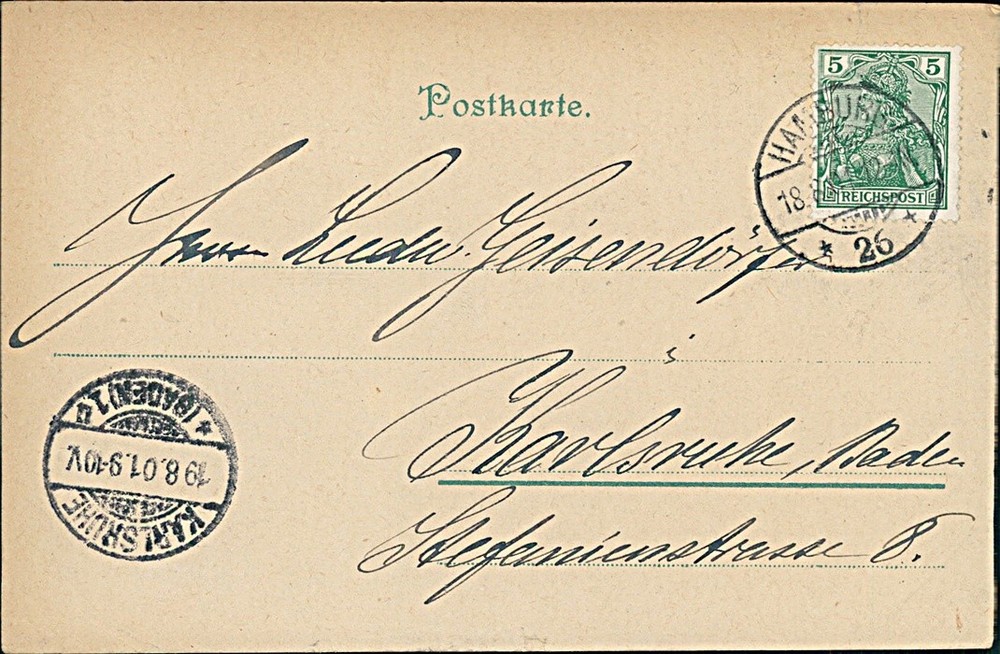 Postkarte.
5 5
REICHSPOST
HAMBURG
18.8
* 26 *
Herrn Geisendörfer
i
Karlsruhe, Baden
Stefanienstrasse 8.
KARLSRUHE
19.8.01.9-10V.
* (BADEN) 1